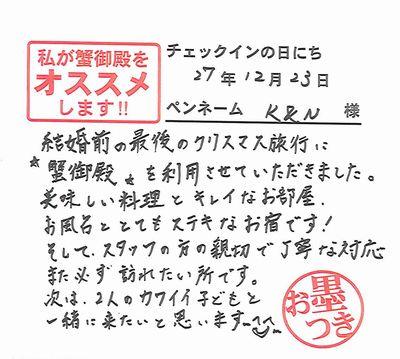 私が蟹御殿を
オススメ
します!!
チェックインの日にち
27年12月23日
ペンネーム K&N 様
結婚前の最後のクリスマス旅行に
★蟹御殿★を利用させていただきました。
美味しい料理とキレイなお部屋、
お風呂ととてもステキなお宿です!
そして、スタッフの方の親切で丁寧な対応
また必ず訪れたい所です。
次は、2人のカワイイ子どもと
一緒に来たいと思います
お墨つき